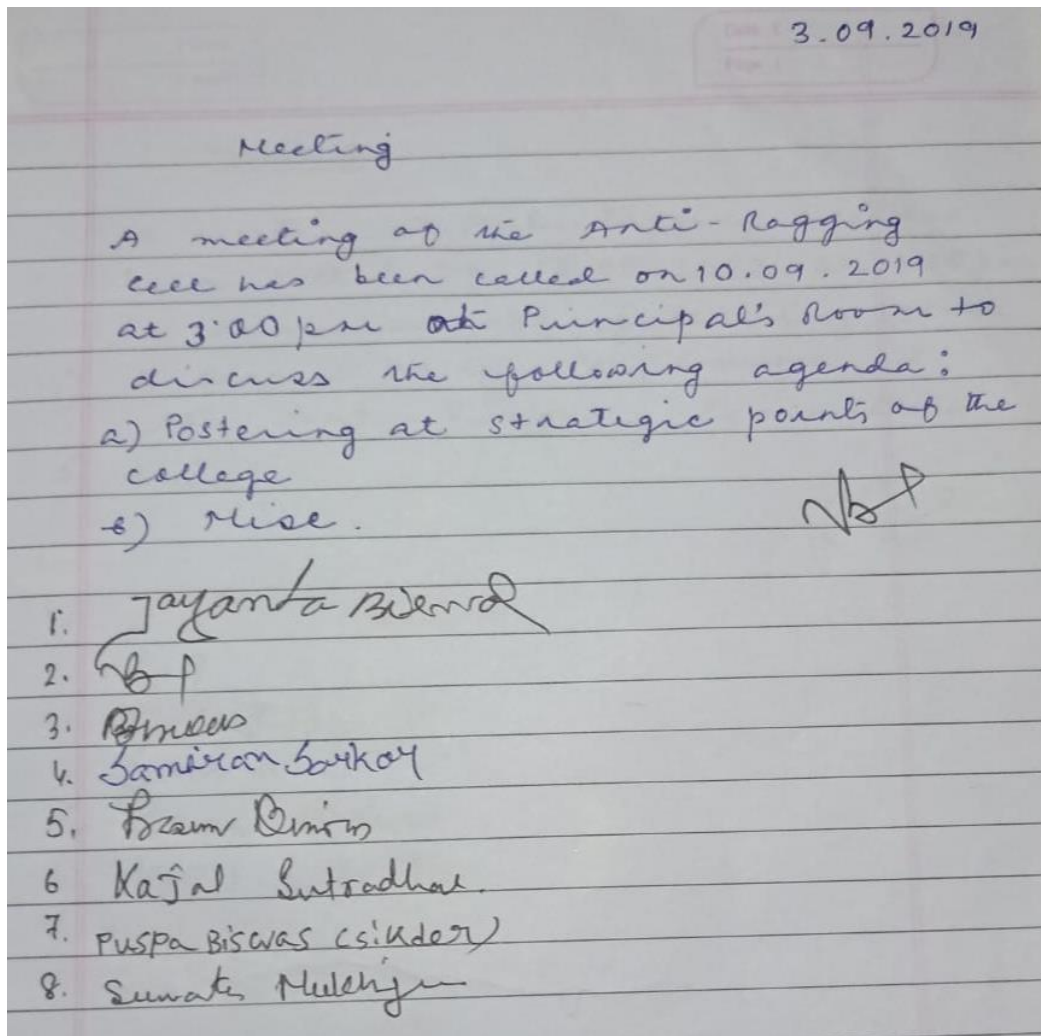 3.09.2019
Meeting
A meeting of the Anti-Ragging
cell has been called on 10.09.2019
at 3:00 pm at Principal's Room to
discuss the following agenda:
a) Postering at strategic points of the
college
b) Misc.
1. Jayanta
2.
3. Biswas
4. Samiran Sarkar
5.
6 Kajal Sutradhar.
7. Puspa Biswas (sikder)
8.